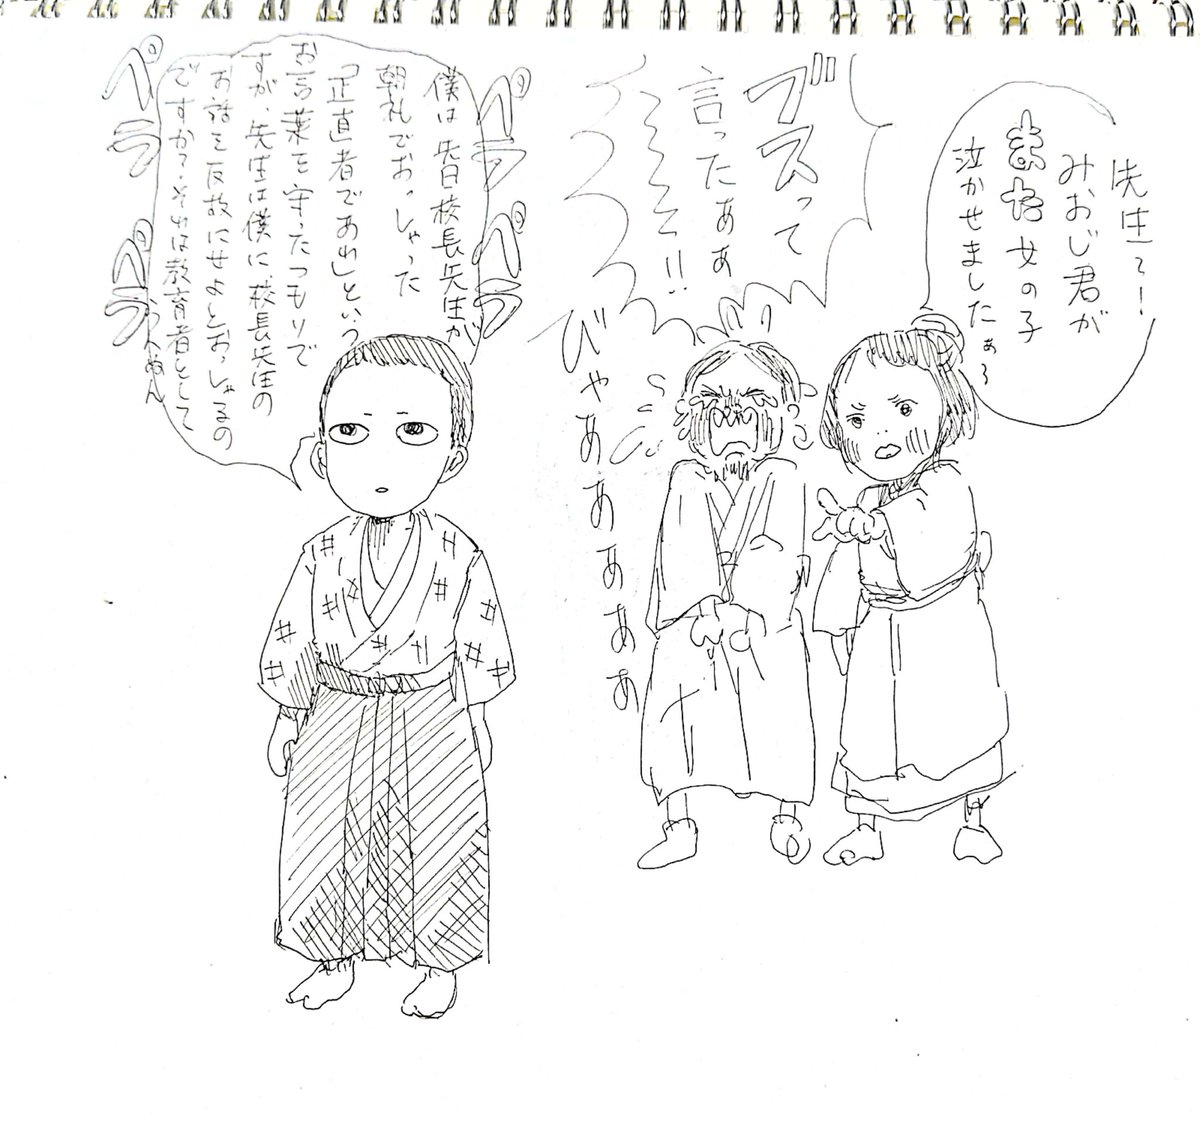 先生〜!
みおじ君が
また女の子
泣かせましたぁ〜
ブスって
言ったぁぁ
〜〜〜〜!!
びゃああああああ
ペラペラ
僕は先日校長先生が
朝礼でおっしゃった
「正直者であれ」という
お言葉を守ったつもりで
すが、先生は僕に校長先生の
お話を反故にせよとおっしゃるの
ですか?それは教育者として
うんぬん
ペラ
ペラ